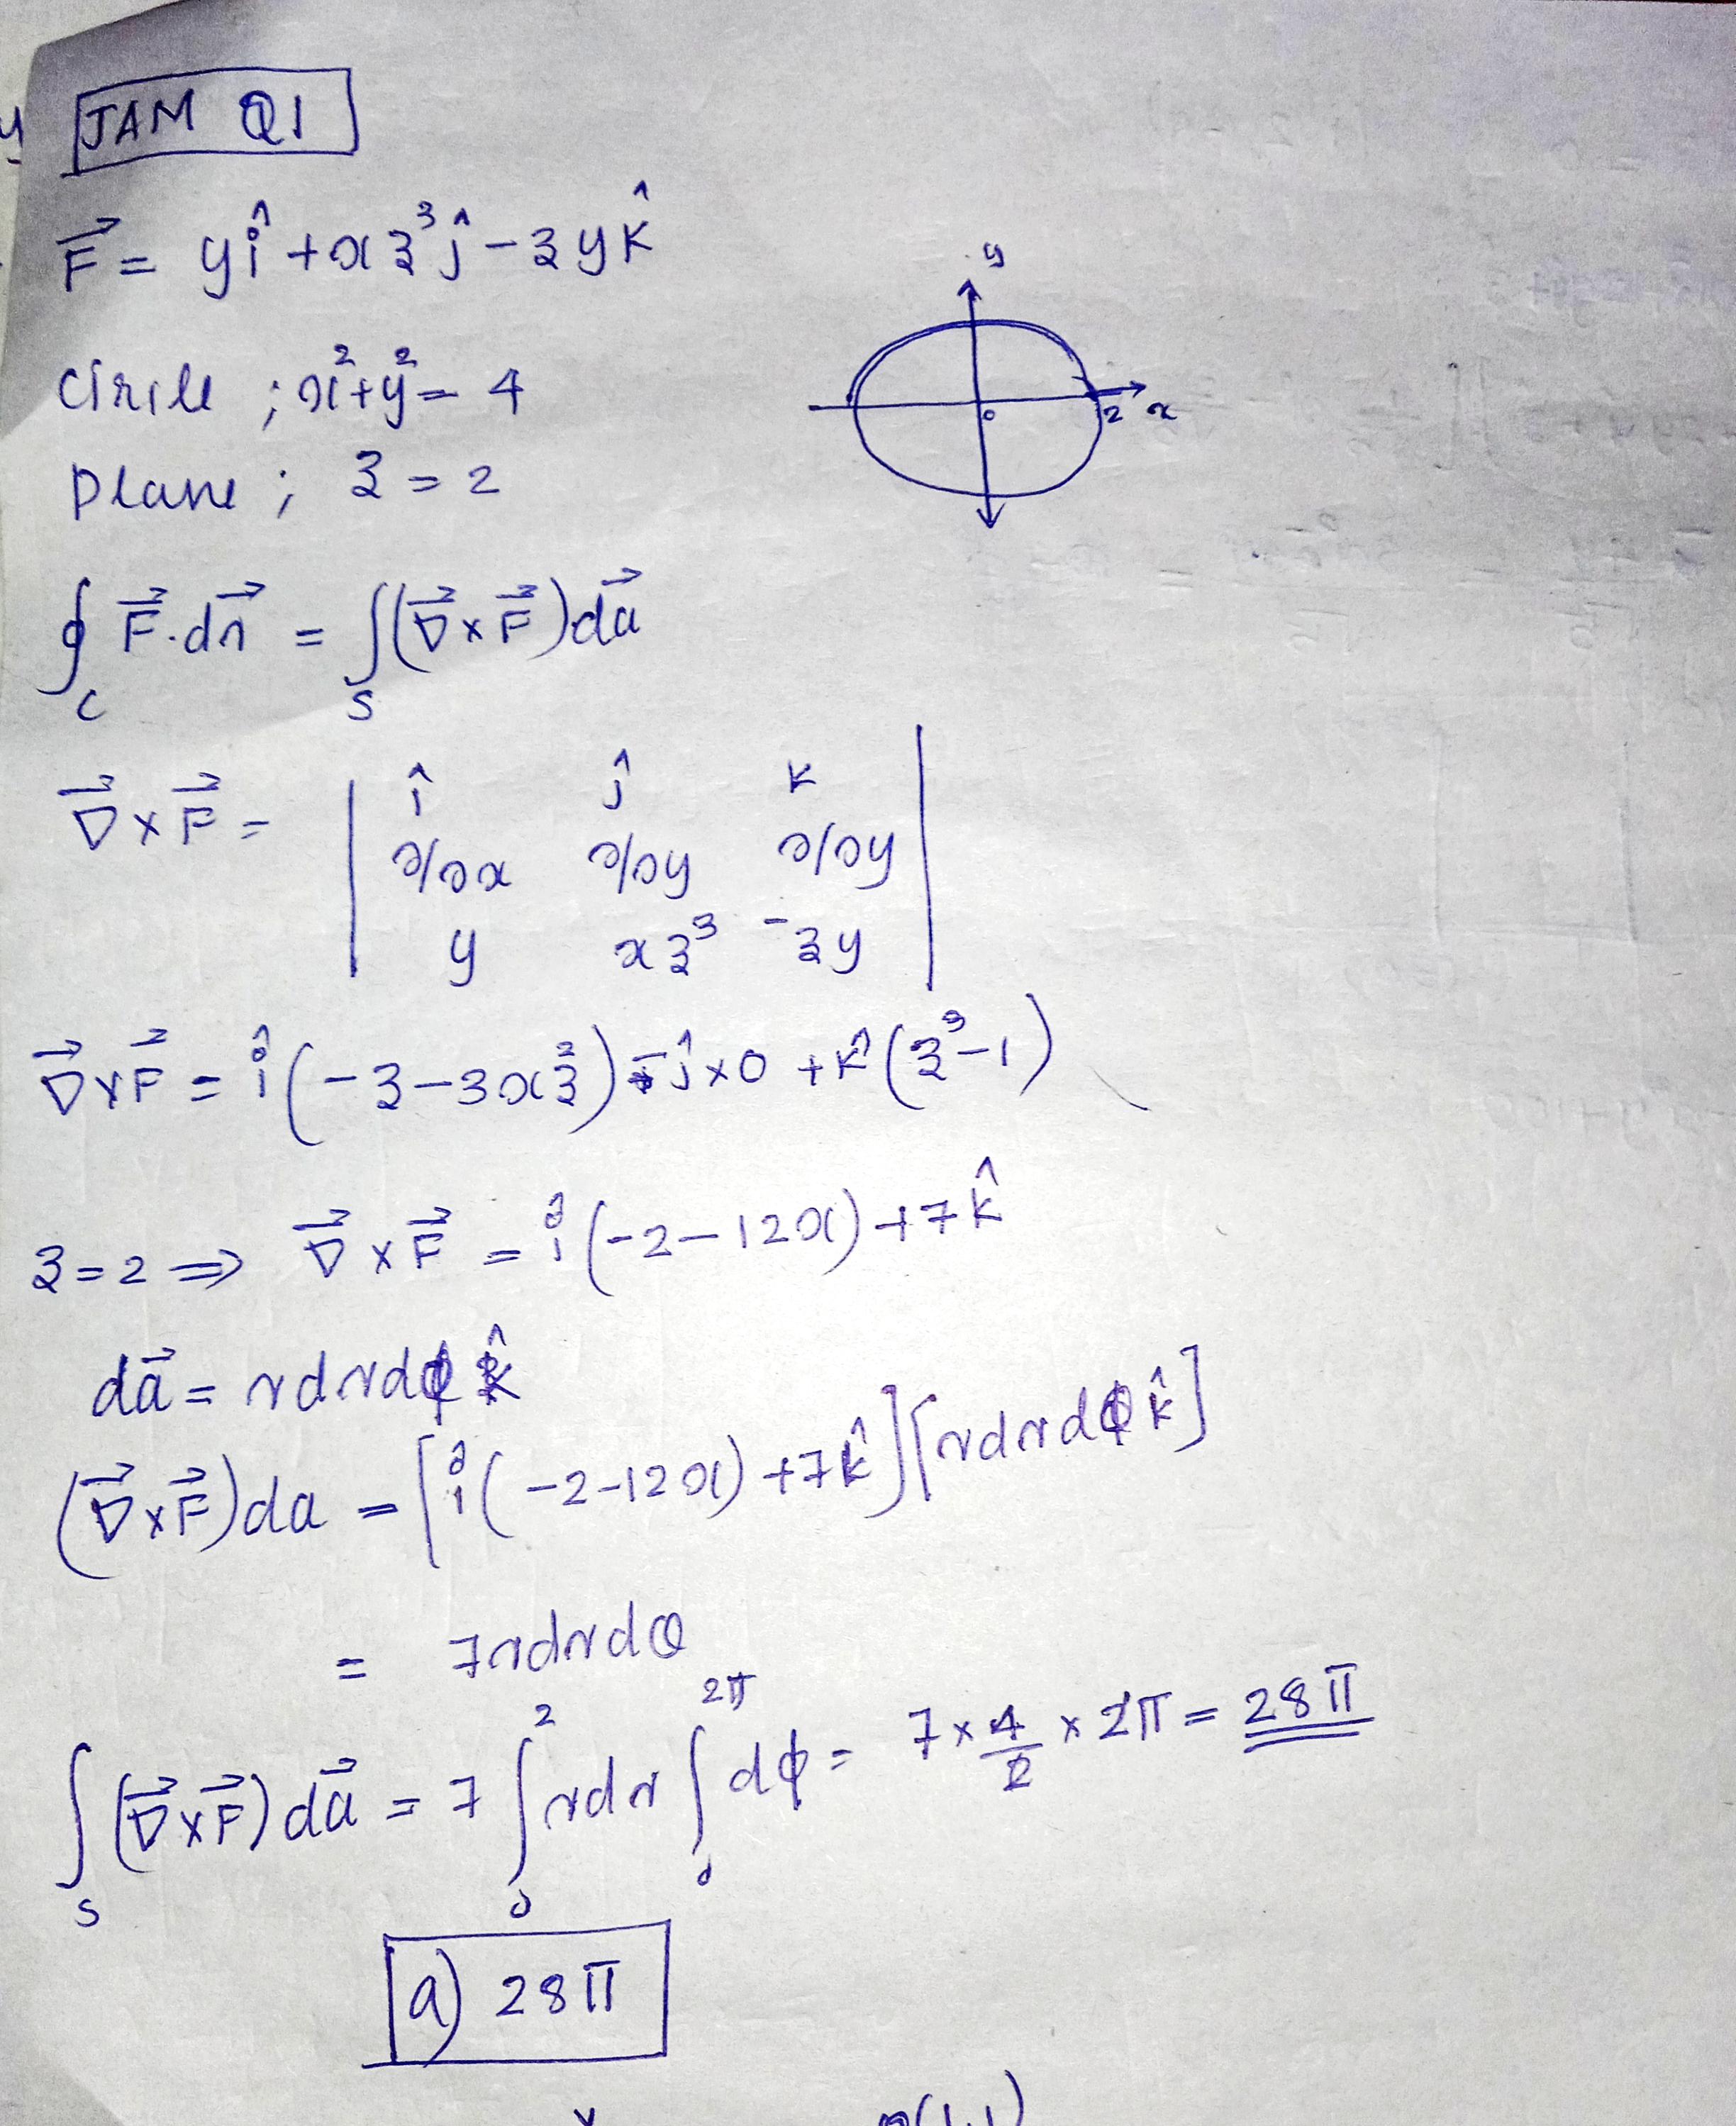 JAM Q1
F⃗ = yî + xz³ĵ - zyk̂
y
Circle ; x² + y² = 4
0 2 x
Plane ; z = 2
∮_C F⃗.dr⃗ = ∫_S (∇⃗ × F⃗) da⃗
∇⃗ × F⃗ = | î ĵ k |
∂/∂x ∂/∂y ∂/∂y
y xz³ -zy
∇⃗ × F⃗ = î(-z - 3xz²) - ĵ × 0 + k̂(z³ - 1)
z = 2 ⇒ ∇⃗ × F⃗ = î(-2 - 12x) + 7k̂
da⃗ = r dr dϕ k̂
(∇⃗ × F⃗) da = [î(-2 - 12x) + 7k̂][r dr dϕ k̂]
= 7 r dr dθ
∫_S (∇⃗ × F⃗) da⃗ = 7 ∫₀² r dr ∫₀^2π dϕ = 7 × 4/2 × 2π = 28π
a) 28π